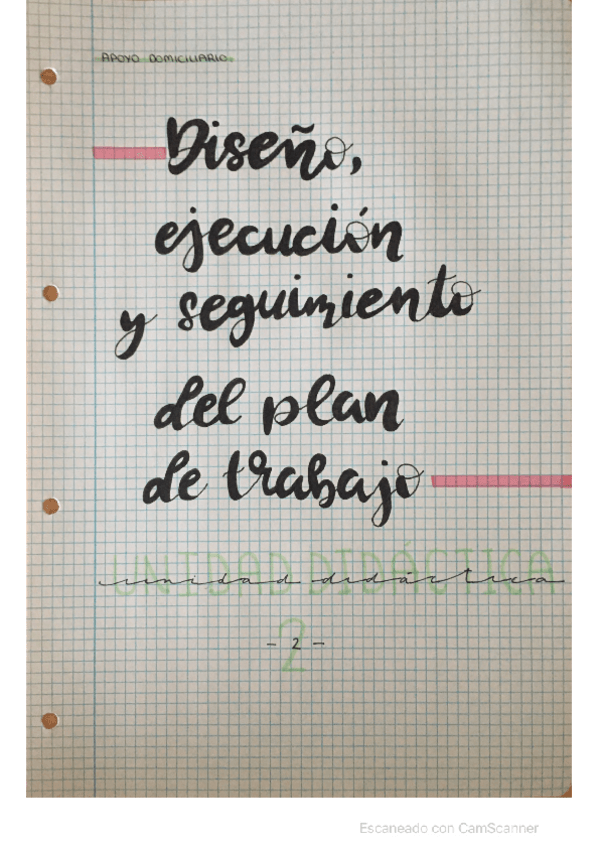 APOYO DOMICILIARIO.
Diseño,
ejecución
y seguimiento
del plan
de trabajo
UNIDAD DIDÁCTICA
unidad didáctica
2
- 2 -
Escaneado con CamScanner